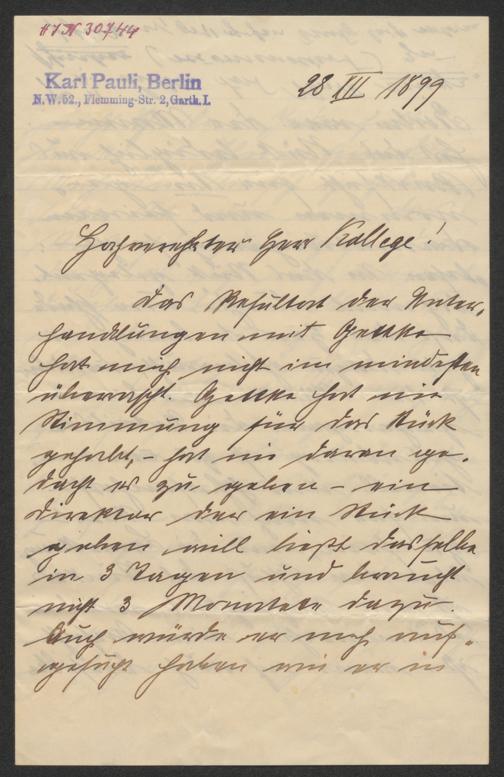 H.I.N. 30744
Karl Pauli, Berlin
N.W. 52., Flemming-Str. 2, Garth. I.
28 III 1899
Hochverehrter Herr Kollege!
Das Resultat der Unter-
handlungen mit Gettke
hat mich nicht im mindesten
überrascht. Gettke hat nie
Stimmung für das Stück
gehabt, – hat nie daran ge-
dacht es zu geben – ein
Direktor der ein Stück
geben will ließt dasselbe
in 3 Tagen und braucht
nicht 3 Monate dazu.
Auch würde er mich auf-
gesucht haben wie er in